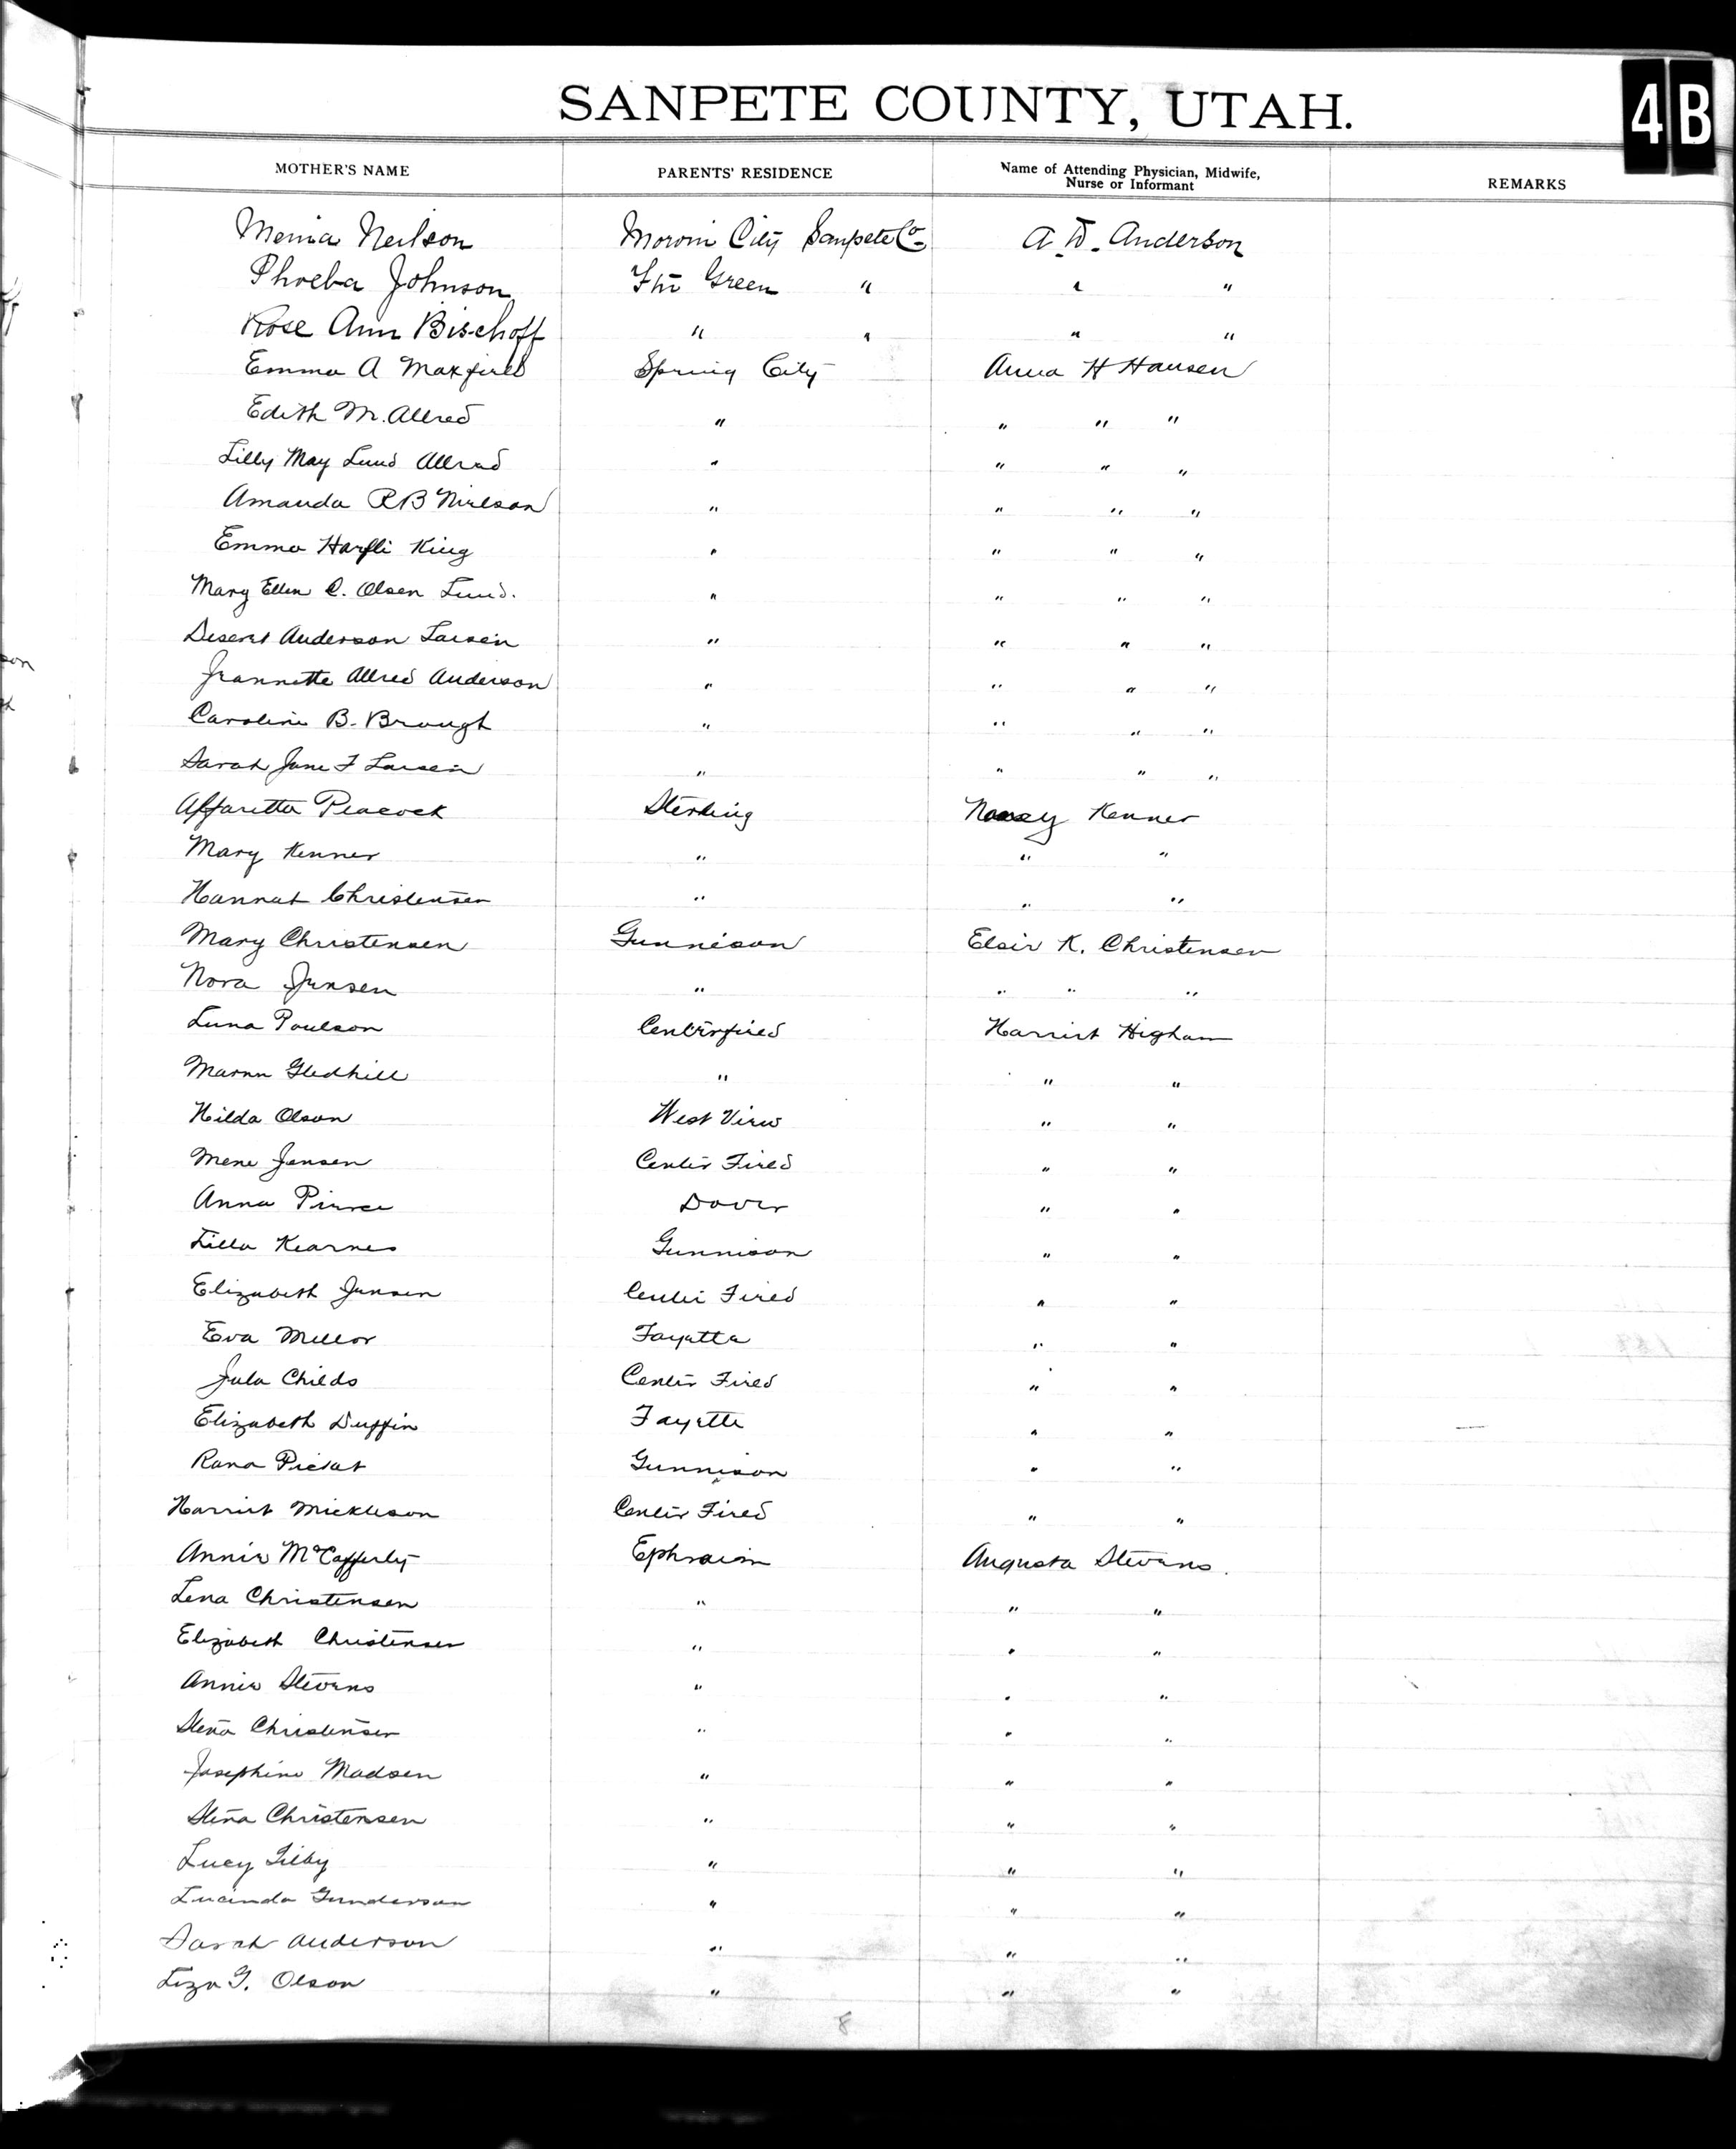 SANPETE COUNTY, UTAH.
4B
MOTHER'S NAME PARENTS' RESIDENCE Name of Attending Physician, Midwife, Nurse or Informant REMARKS
Menia Neilson Moroni City Sanpete Co A. D. Anderson
Phoeba Johnson Ftn Green " " "
Rose Ann Bischoff " " " "
Emma A Maxfield Spring City Anna H Hansen
Edith M. Allred " " " "
Lilly May Lund Allred " " " "
Amanda R B Nielson " " " "
Emma King " " " "
Mary Ellen C. Olsen Lund. " " " "
Deseret Anderson Larsen " " " "
Jeannette Allred Anderson " " " "
Caroline B. Brough " " " "
Sarah Jane F Larsen " " " "
Affaretta Peacock Sterling Nancy Kenner
Mary Kenner " " "
Hannah Christensen " " "
Mary Christensen Gunnison Elsie K. Christensen
Nora Jensen " " " "
Luna Poulson Centerfield Harriet Higham
Gledhill " " "
Hilda Olson West View " "
Mene Jensen Center Field " "
Anna Pierce Dover " "
Lilla Kearnes Gunnison " "
Elizabeth Jensen Center Field " "
Eva Mellor Fayette " "
Jula Childs Center Field " "
Elizabeth Duffin Fayette " "
Rana Gunnison " "
Harriet Mickleson Center Field " "
Annie McCafferty Ephraim Augusta Stevens.
Lena Christensen " " "
Elizabeth Christensen " " "
Annie Stevens " " "
Stena Christensen " " "
Josephine Madsen " " "
Stena Christensen " " "
Lucy " " "
Lucinda Gunderson " " "
Sarah Anderson " " "
Liza G. Olson " " "
8